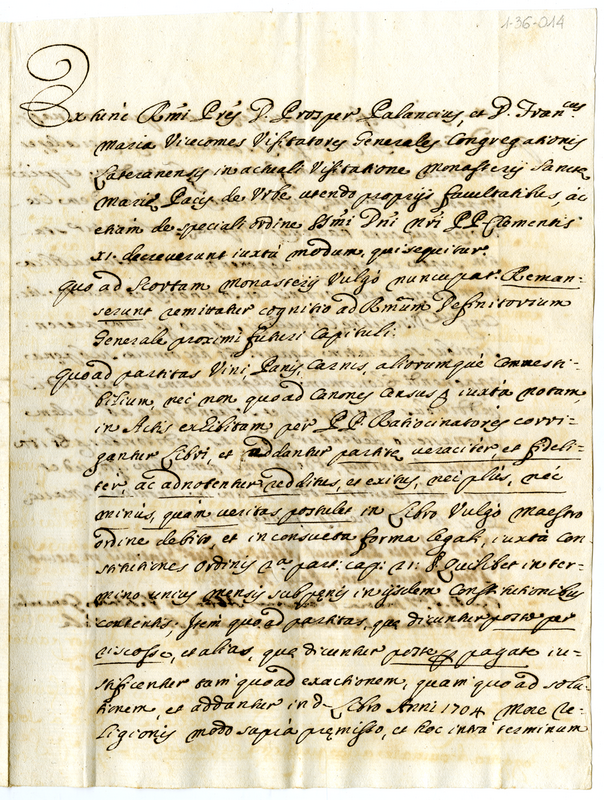 1-36-014
Ex hinc Rmi Prēs D. Prosper Palancius, et D. Fran.cus
Maria Vicecomes Visitatores Generales Congregationis
Lateranensis in actuali Visitatione Monasterij Sanctę
Marię Pacis de Urbe utendo proprijs facultatibus, ac
etiam de speciali ordine SSmi Dni Nri PP Clementis
XI. decreverunt iuxtà modum, qui sequitur.
Quo ad Scortam Monasterij Vulgò nuncupat. Reman-
serunt remitatur cognitio ad Rmūm Definitorium
Generale proximi futuri Capituli.
Quoad partitas Vini, Panis, Carnis, aliorumquè Commesti-
bilium, nec non quoad Canones Census iuxtà notam,
in Actis exhibitam per PP. Ratiocinatores corri-
gantur Libri, et addantur partitę veraciter, et fideli-
ter, ac adnotentur redditus, et exitus, nec plùs, nèc
minùs, quàm veritas postulet in Libro Vulgò Maestro
ordine debito, et in consueta forma legali, iuxtà Con-
stitutiones Ordinis 2.a par: cap: 21: § Quilibet in ter-
mino unius mensis sub pęnis in ijsdem Constitutionibus
contentis. Item quoad partitas, quę dicuntur poste per
riscosse, et alias, quę dicuntur poste pagate iu-
stificentur tam quoad exactionem, quam quoad solu-
tionem, et addantur in d.o Libro Anni 1704 More Re-
ligionis modo saprà pręmisso, et hoc intrà terminum